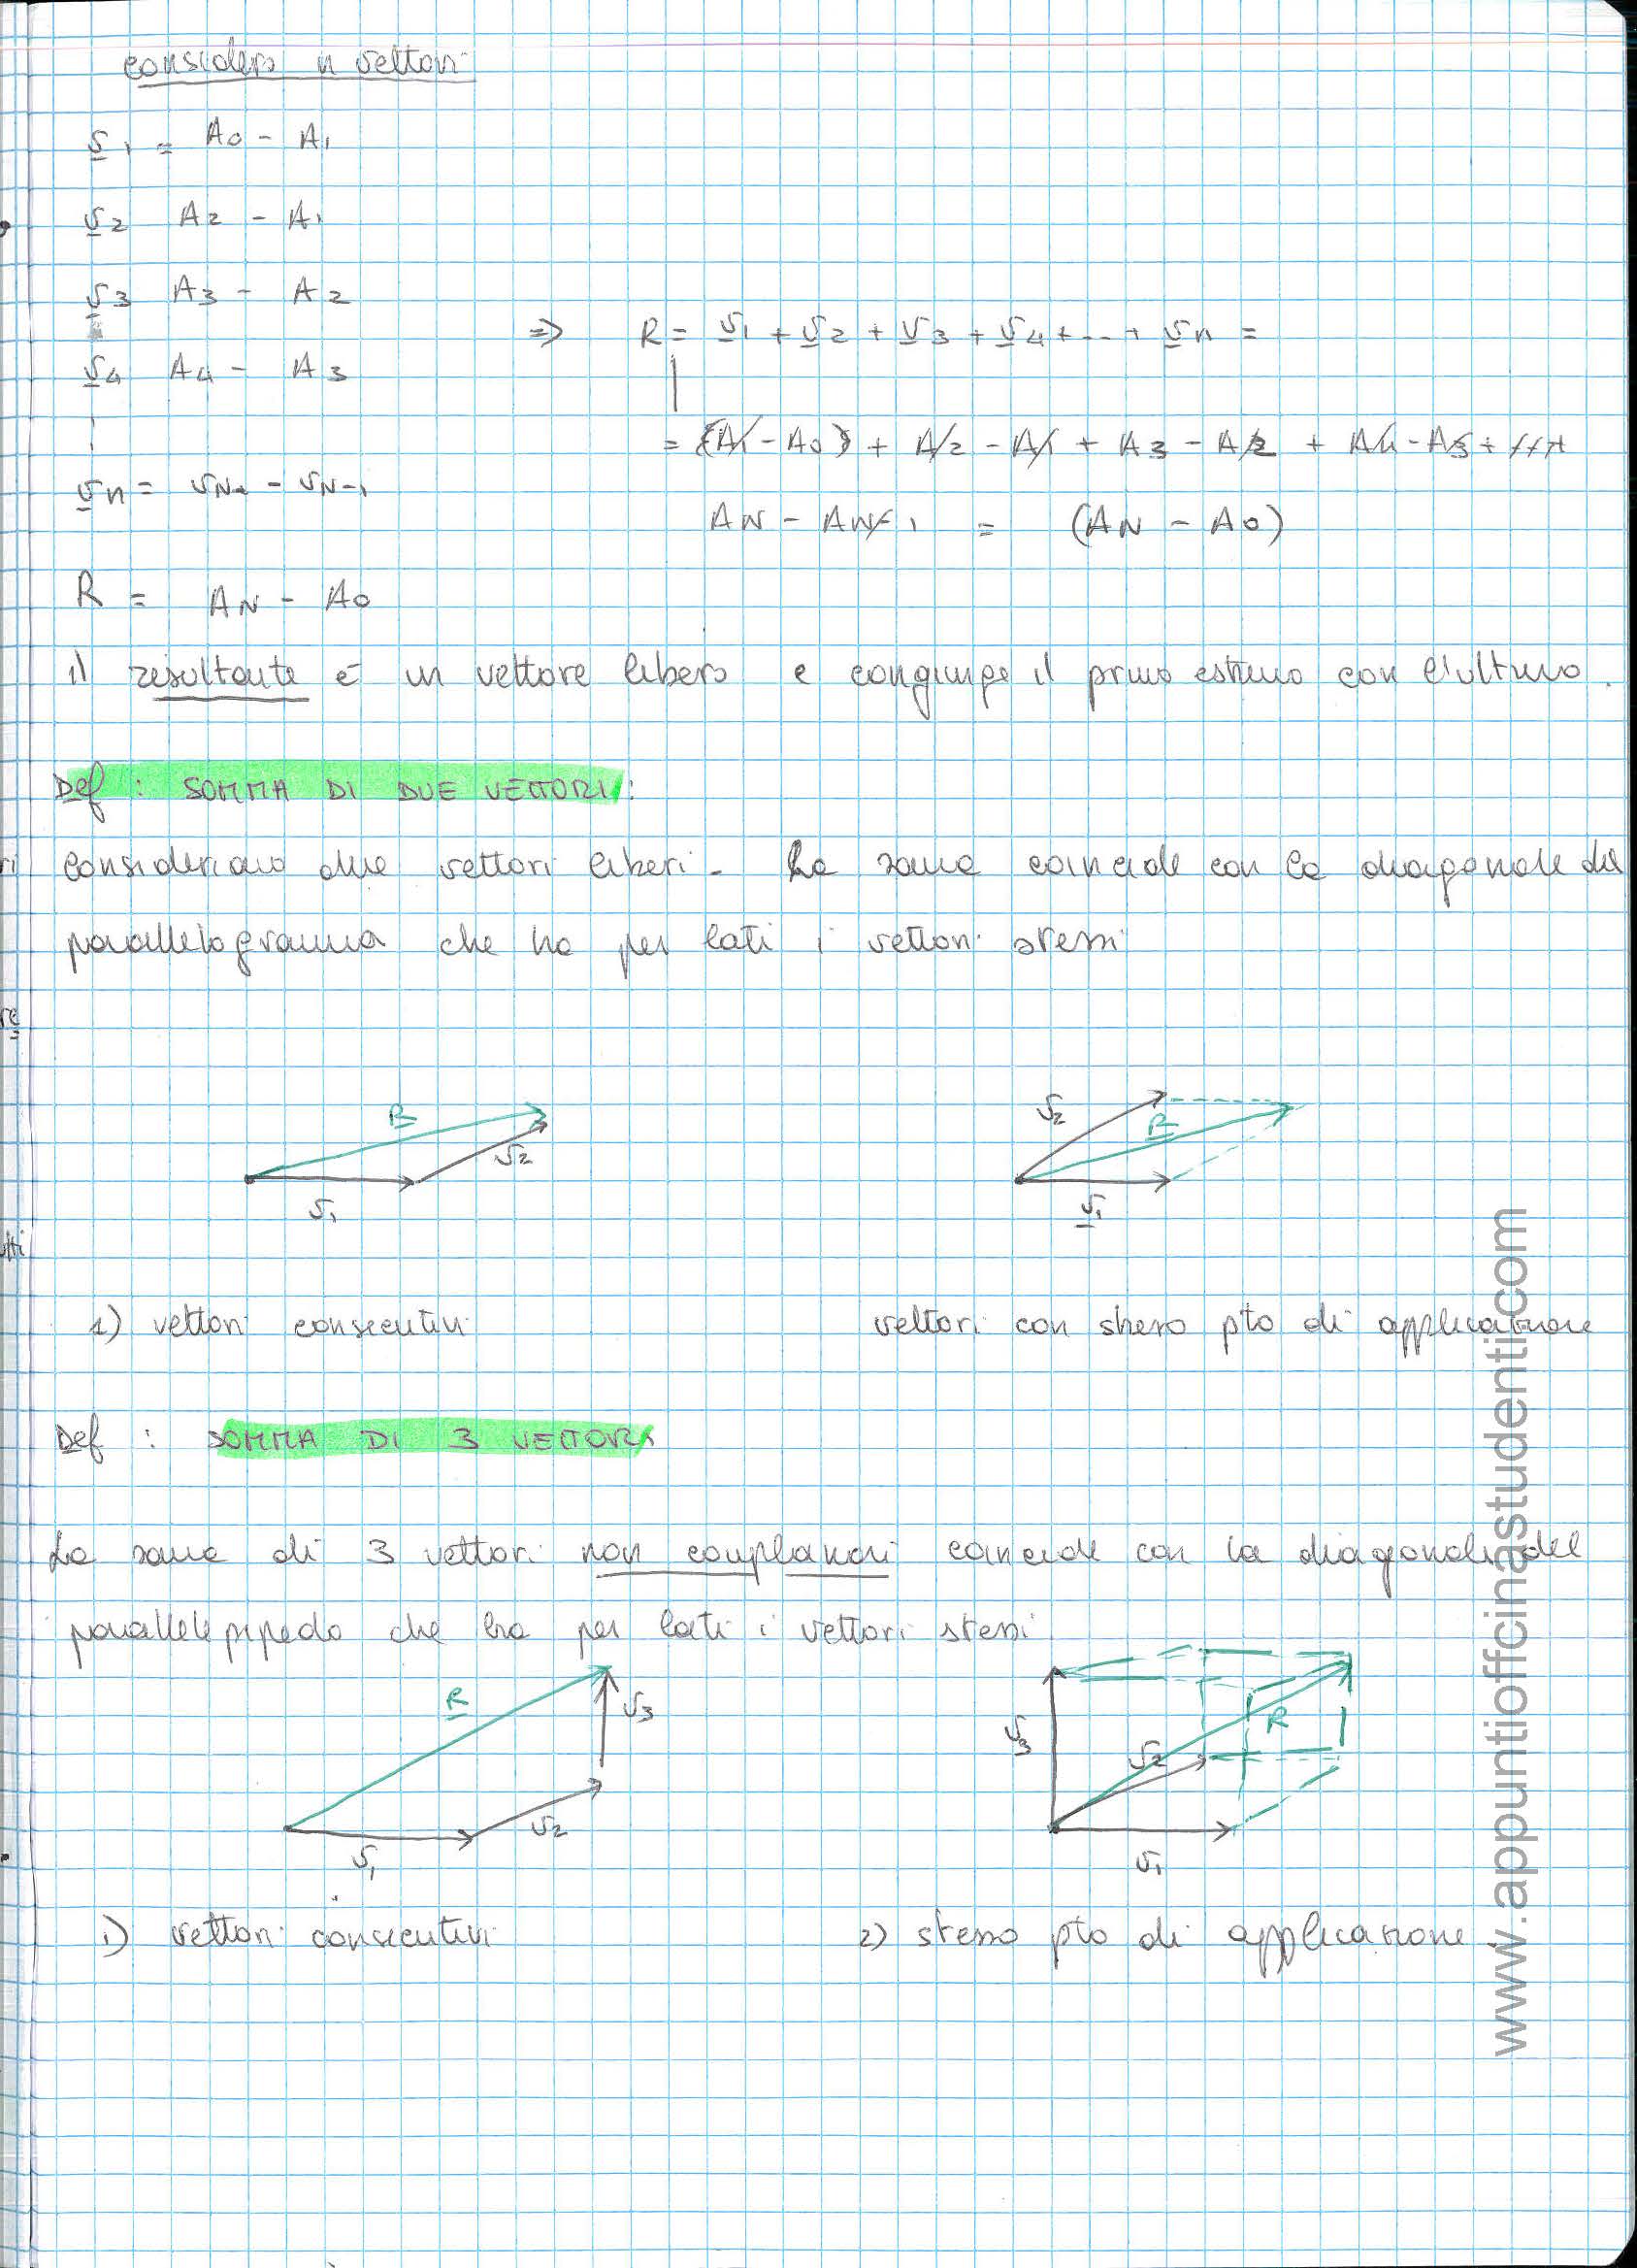 considero n vettori
v1 = A0 - A1
v2 A2 - A1
v3 A3 - A2
v4 A4 - A3
⇒ R = v1 + v2 + v3 + v4 + ... + vn =
= (A1 - A0) + A2 - A1 + A3 - A2 + A4 - A3 +
vn = vN - vN-1
AN - AN-1 = (AN - A0)
R = AN - A0
il resultante è un vettore libero e congiunge il primo estremo con l'ultimo.
Def : SOMMA DI DUE VETTORI :
ri
consideriamo due vettori liberi. La somma coincide con la diagonale del
parallelogramma che ha per lati i vettori stessi
re
R v2 v1
v2 R v1
tti
1) vettori consecutivi
vettori con stesso pto di applicazione
Def : SOMMA DI 3 VETTORI
La somma di 3 vettori non complanari coincide con la diagonale del
parallelepipedo che ha per lati i vettori stessi
R v3 v2 v1
v3 v2 R v1
1) vettori consecutivi
2) stesso pto di applicazione.
www.appuntioffcinastudenti.com